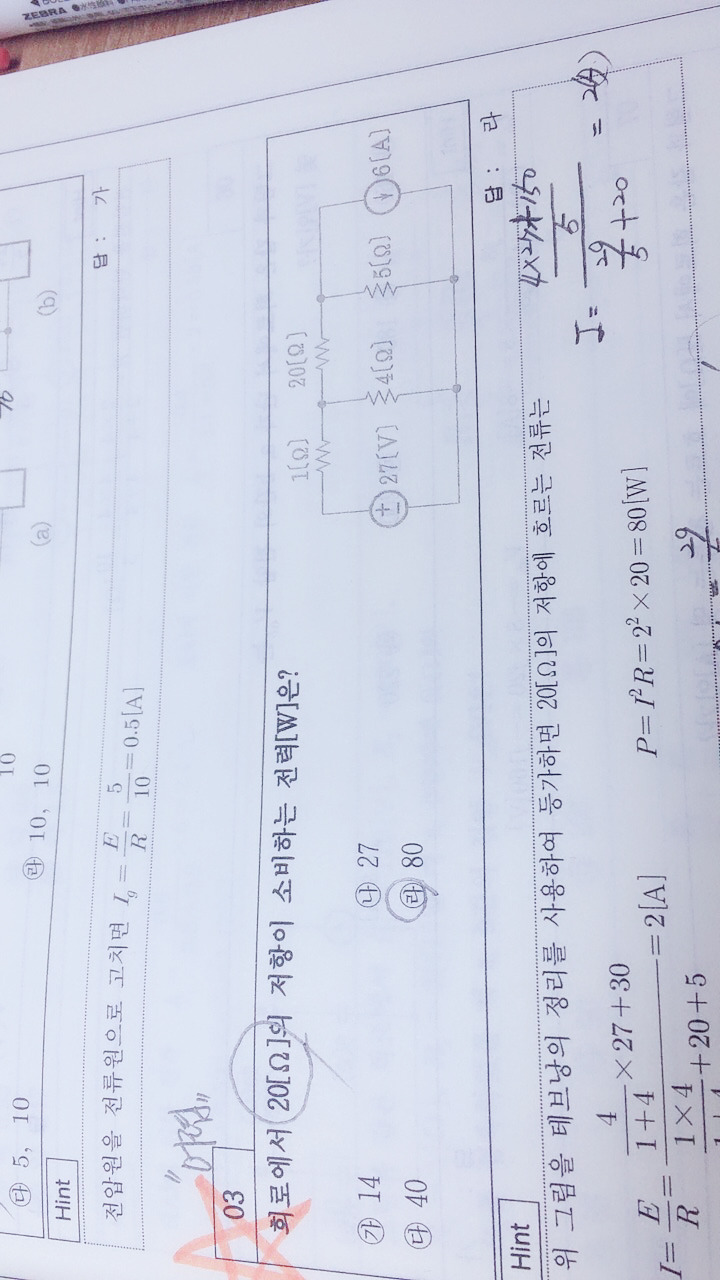 ZEBRA
10
㉰ 5, 10
㉱ 10, 10
(a)
(b)
답 : 가
Hint
전압원을 전류원으로 고치면 I_g = E/R = 5/10 = 0.5[A]
"어렵"
03
회로에서 20[Ω]의 저항이 소비하는 전력[W]은?
㉮ 14
㉯ 27
㉰ 40
㉱ 80
1[Ω]
20[Ω]
27[V]
4[Ω]
5[Ω]
6[A]
답 : 라
Hint
위 그림을 테브낭의 정리를 사용하여 등가하면 20[Ω]의 저항에 흐르는 전류는
I = E/R = (4/(1+4) × 27 + 30)/((1×4)/(1+4) + 20 + 5) = 2[A]
P = I²R = 2² × 20 = 80[W]
I = = 2(A)
29/5 + 20
29